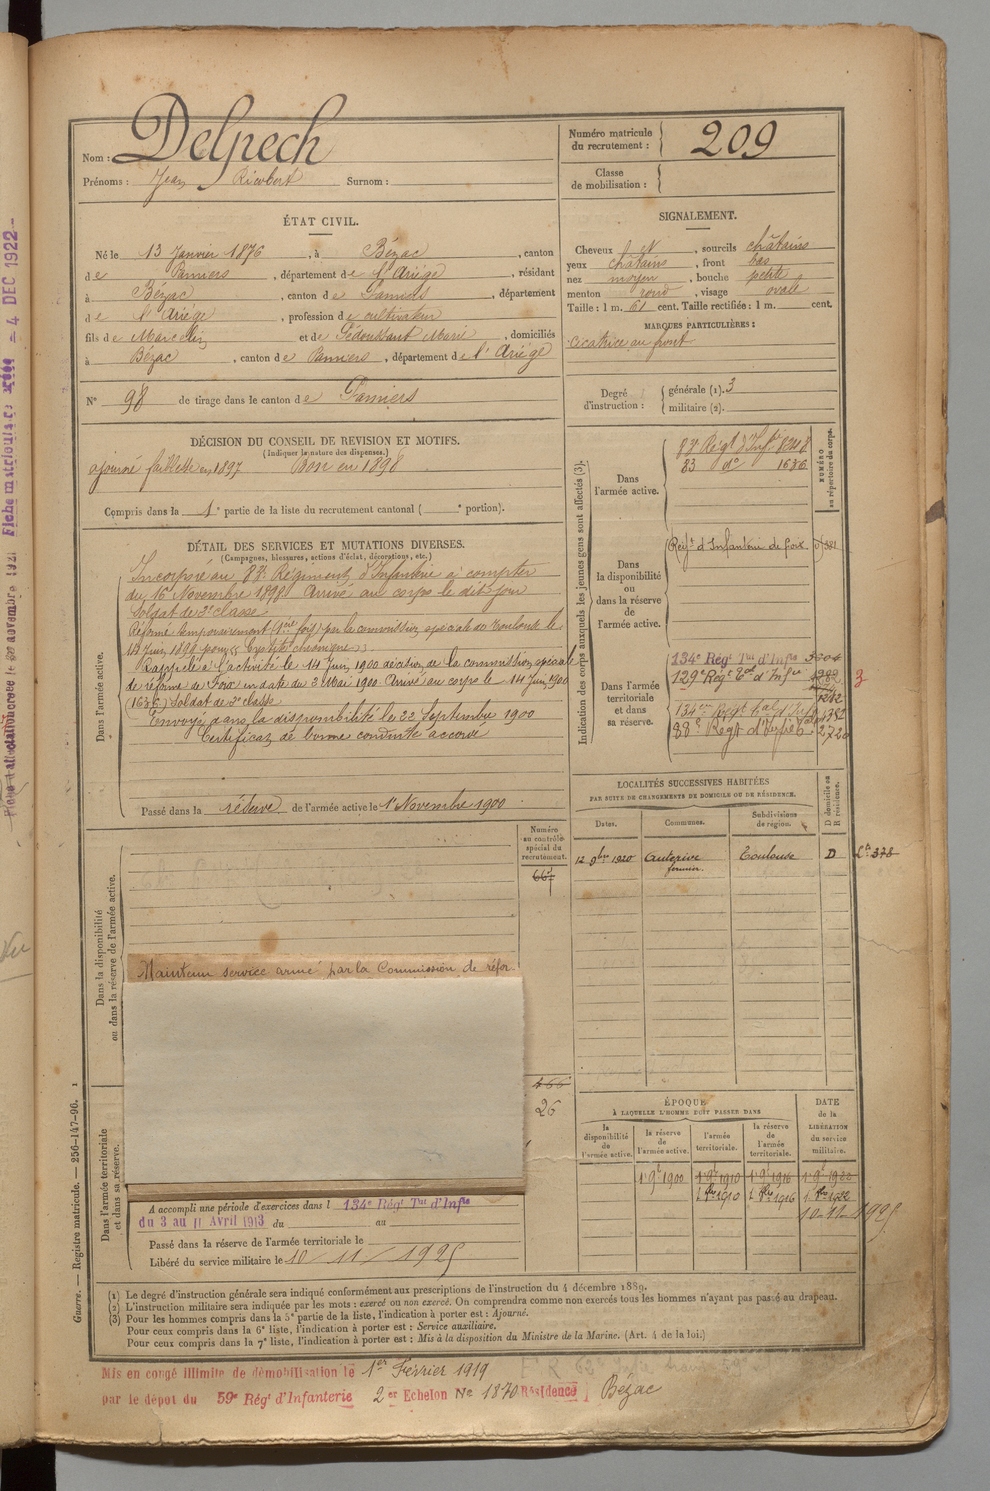 Nom : Delpech
Prénoms : Jean Ricobert Surnom :
Numéro matricule du recrutement : 209
Classe de mobilisation :
ÉTAT CIVIL.
Né le 13 Janvier 1876, à Bézac, canton
de Pamiers, département de l'Ariège, résidant
à Bézac, canton de Pamiers, département
de l'Ariège, profession de cultivateur
fils de Marcelin et de Pédoussant Marie, domiciliés
à Bézac, canton de Pamiers, département de l'Ariège
N° 98 de tirage dans le canton de Pamiers
SIGNALEMENT.
Cheveux et, sourcils châtains
yeux châtains, front bas
nez moyen, bouche petite
menton rond, visage ovale
Taille : 1 m. 61 cent. Taille rectifiée : 1 m. cent.
MARQUES PARTICULIÈRES :
cicatrice au front
Degré d'instruction : générale (1). 3
militaire (2).
DÉCISION DU CONSEIL DE REVISION ET MOTIFS.
(Indiquer la nature des dispenses.)
ajourné faiblesse en 1897 Bon en 1898
Compris dans la 1e partie de la liste du recrutement cantonal ( e portion).
DÉTAIL DES SERVICES ET MUTATIONS DIVERSES.
(Campagnes, blessures, actions d'éclat, décorations, etc.)
Dans l'armée active.
Incorporé au 83e Régiment d'Infanterie à compter
du 16 Novembre 1898. Arrivé au corps le dit jour
Soldat de 2e classe.
Réformé temporairement (1ère fois) par la commission spéciale de Toulouse le
13 Juin 1899 pour « Cystite chronique »
Rappelé à l'activité le 14 Juin 1900 décision de la commission spéciale
de réforme de Foix en date du 3 Mai 1900. Arrivé au corps le 14 Juin 1900
(1636) Soldat de 2e classe.
Envoyé dans la disponibilité le 22 Septembre 1900
Certificat de bonne conduite accordé
Passé dans la réserve de l'armée active le 1er Novembre 1900
Indication des corps auxquels les jeunes gens sont affectés (3).
NUMÉRO au répertoire du corps.
Dans l'armée active.
83e Régt d'Infie
83 do 1636
Dans la disponibilité ou dans la réserve de l'armée active.
Régt d'Infanterie de Foix
Dans l'armée territoriale et dans sa réserve.
134e Régt Tal d'Infie 3204
129e Régt Tal d'Infie 1282
1242
134e Régt Tal d'Infie 1352
88e Régt d'Infie 2,720
3
LOCALITÉS SUCCESSIVES HABITÉES
PAR SUITE DE CHANGEMENTS DE DOMICILE OU DE RÉSIDENCE.
Dates. Communes. Subdivisions de région. D domicile ou R résidence.
12 9bre 1920 Auterive Toulouse D
378
Numéro au contrôle spécial du recrutement.
667
Dans la disponibilité ou dans la réserve de l'armée active.
Maintenu service armé par la Commission de réfor-
466
26
Dans l'armée territoriale et dans sa réserve.
A accompli une période d'exercices dans l 134e Régt Tal d'Infie
du 3 au 11 Avril 1913 du au
Passé dans la réserve de l'armée territoriale le
Libéré du service militaire le 10 11 1925
ÉPOQUE
À LAQUELLE L'HOMME DOIT PASSER DANS
la disponibilité de l'armée active. la réserve de l'armée active. l'armée territoriale. la réserve de l'armée territoriale. DATE de la LIBÉRATION du service militaire.
1 9bre 1900 1 9bre 1910 1 9bre 1916 1 9bre 1922
1 8bre 1910 1 8bre 1916 1 8bre 1922
10-11-1925
(1) Le degré d'instruction générale sera indiqué conformément aux prescriptions de l'instruction du 4 décembre 1889.
(2) L'instruction militaire sera indiquée par les mots : exercé ou non exercé. On comprendra comme non exercés tous les hommes n'ayant pas passé au drapeau.
(3) Pour les hommes compris dans la 5e partie de la liste, l'indication à porter est : Ajourné.
Pour ceux compris dans la 6e liste, l'indication à porter est : Service auxiliaire.
Pour ceux compris dans la 7e liste, l'indication à porter est : Mis à la disposition du Ministre de la Marine. (Art. 4 de la loi.)
Guerre. — Registre matricule. — 256-147-96. 1
Mis en congé illimité de démobilisation le 1er Février 1919
par le dépôt du 59e Régt d'Infanterie 2er Echelon No 1870 Résidence Bézac
4 DEC 1922
Vu